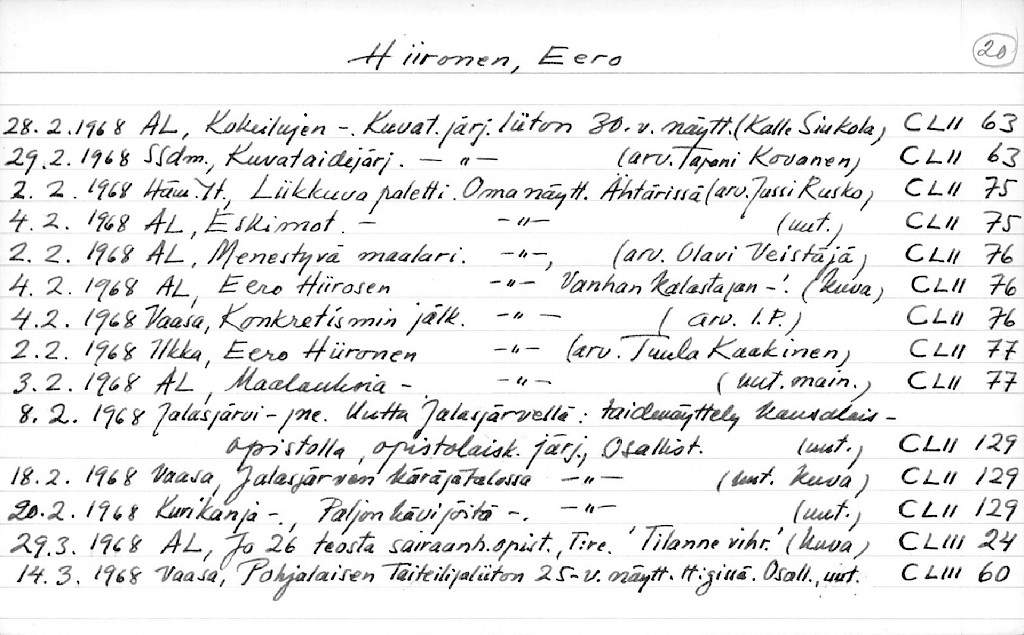 Hiironen, Eero
20
28.2.1968 AL, Kokeilujen -. Kuvat. järj. liiton 30-v. näytt. (Kalle Siukola) CLII 63
29.2.1968 SSdm., Kuvataidejärj. — " — (arv. Tapani Kovanen) CLII 63
2.2.1968 Häm. Yt., Liikkuva paletti. Oma näytt. Ähtärissä (arv. Jussi Rusko) CLII 75
4.2.1968 AL, Eskimot. — - " - (uut.) CLII 75
2.2.1968 AL, Menestyvä maalari. - " -, (arv. Olavi Veistäjä) CLII 76
4.2.1968 AL, Eero Hiirosen - " - Vanhan kalastajan -'. (kuva) CLII 76
4.2.1968 Vaasa, Konkretismin jälk. - " - (arv. I.P.) CLII 76
2.2.1968 Ilkka, Eero Hiironen - " - (arv. Tuula Kaakinen) CLII 77
3.2.1968 AL, Maalauksia - - " - (uut. main.) CLII 77
8.2.1968 Jalasjärvi - jne. Uutta Jalasjärvellä: taidenäyttely kansalais-
opistolla, opistolaisk. järj., Osallist. (uut.) CLII 129
18.2.1968 Vaasa, Jalasjärven käräjätalossa - " - (uut. kuva) CLII 129
20.2.1968 Kurikanja -., Paljon kävijöitä -. - " - (uut.) CLII 129
29.3.1968 AL, Jo 26 teosta sairaanh.opist., T:re. 'Tilanne vihr.' (kuva) CLIII 24
14.3.1968 Vaasa, Pohjalaisen Taiteilijaliiton 25-v. näytt. H:gissä. Osall., uut. CLIII 60